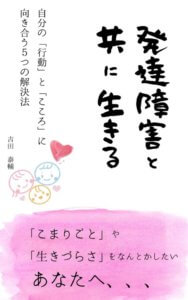 発達障害と
共に生きる
自分の「行動」と「こころ」に
向き合う５つの解決法
吉田 泰輔
「こまりごと」や
「生きづらさ」をなんとかしたい
あなたへ、、、